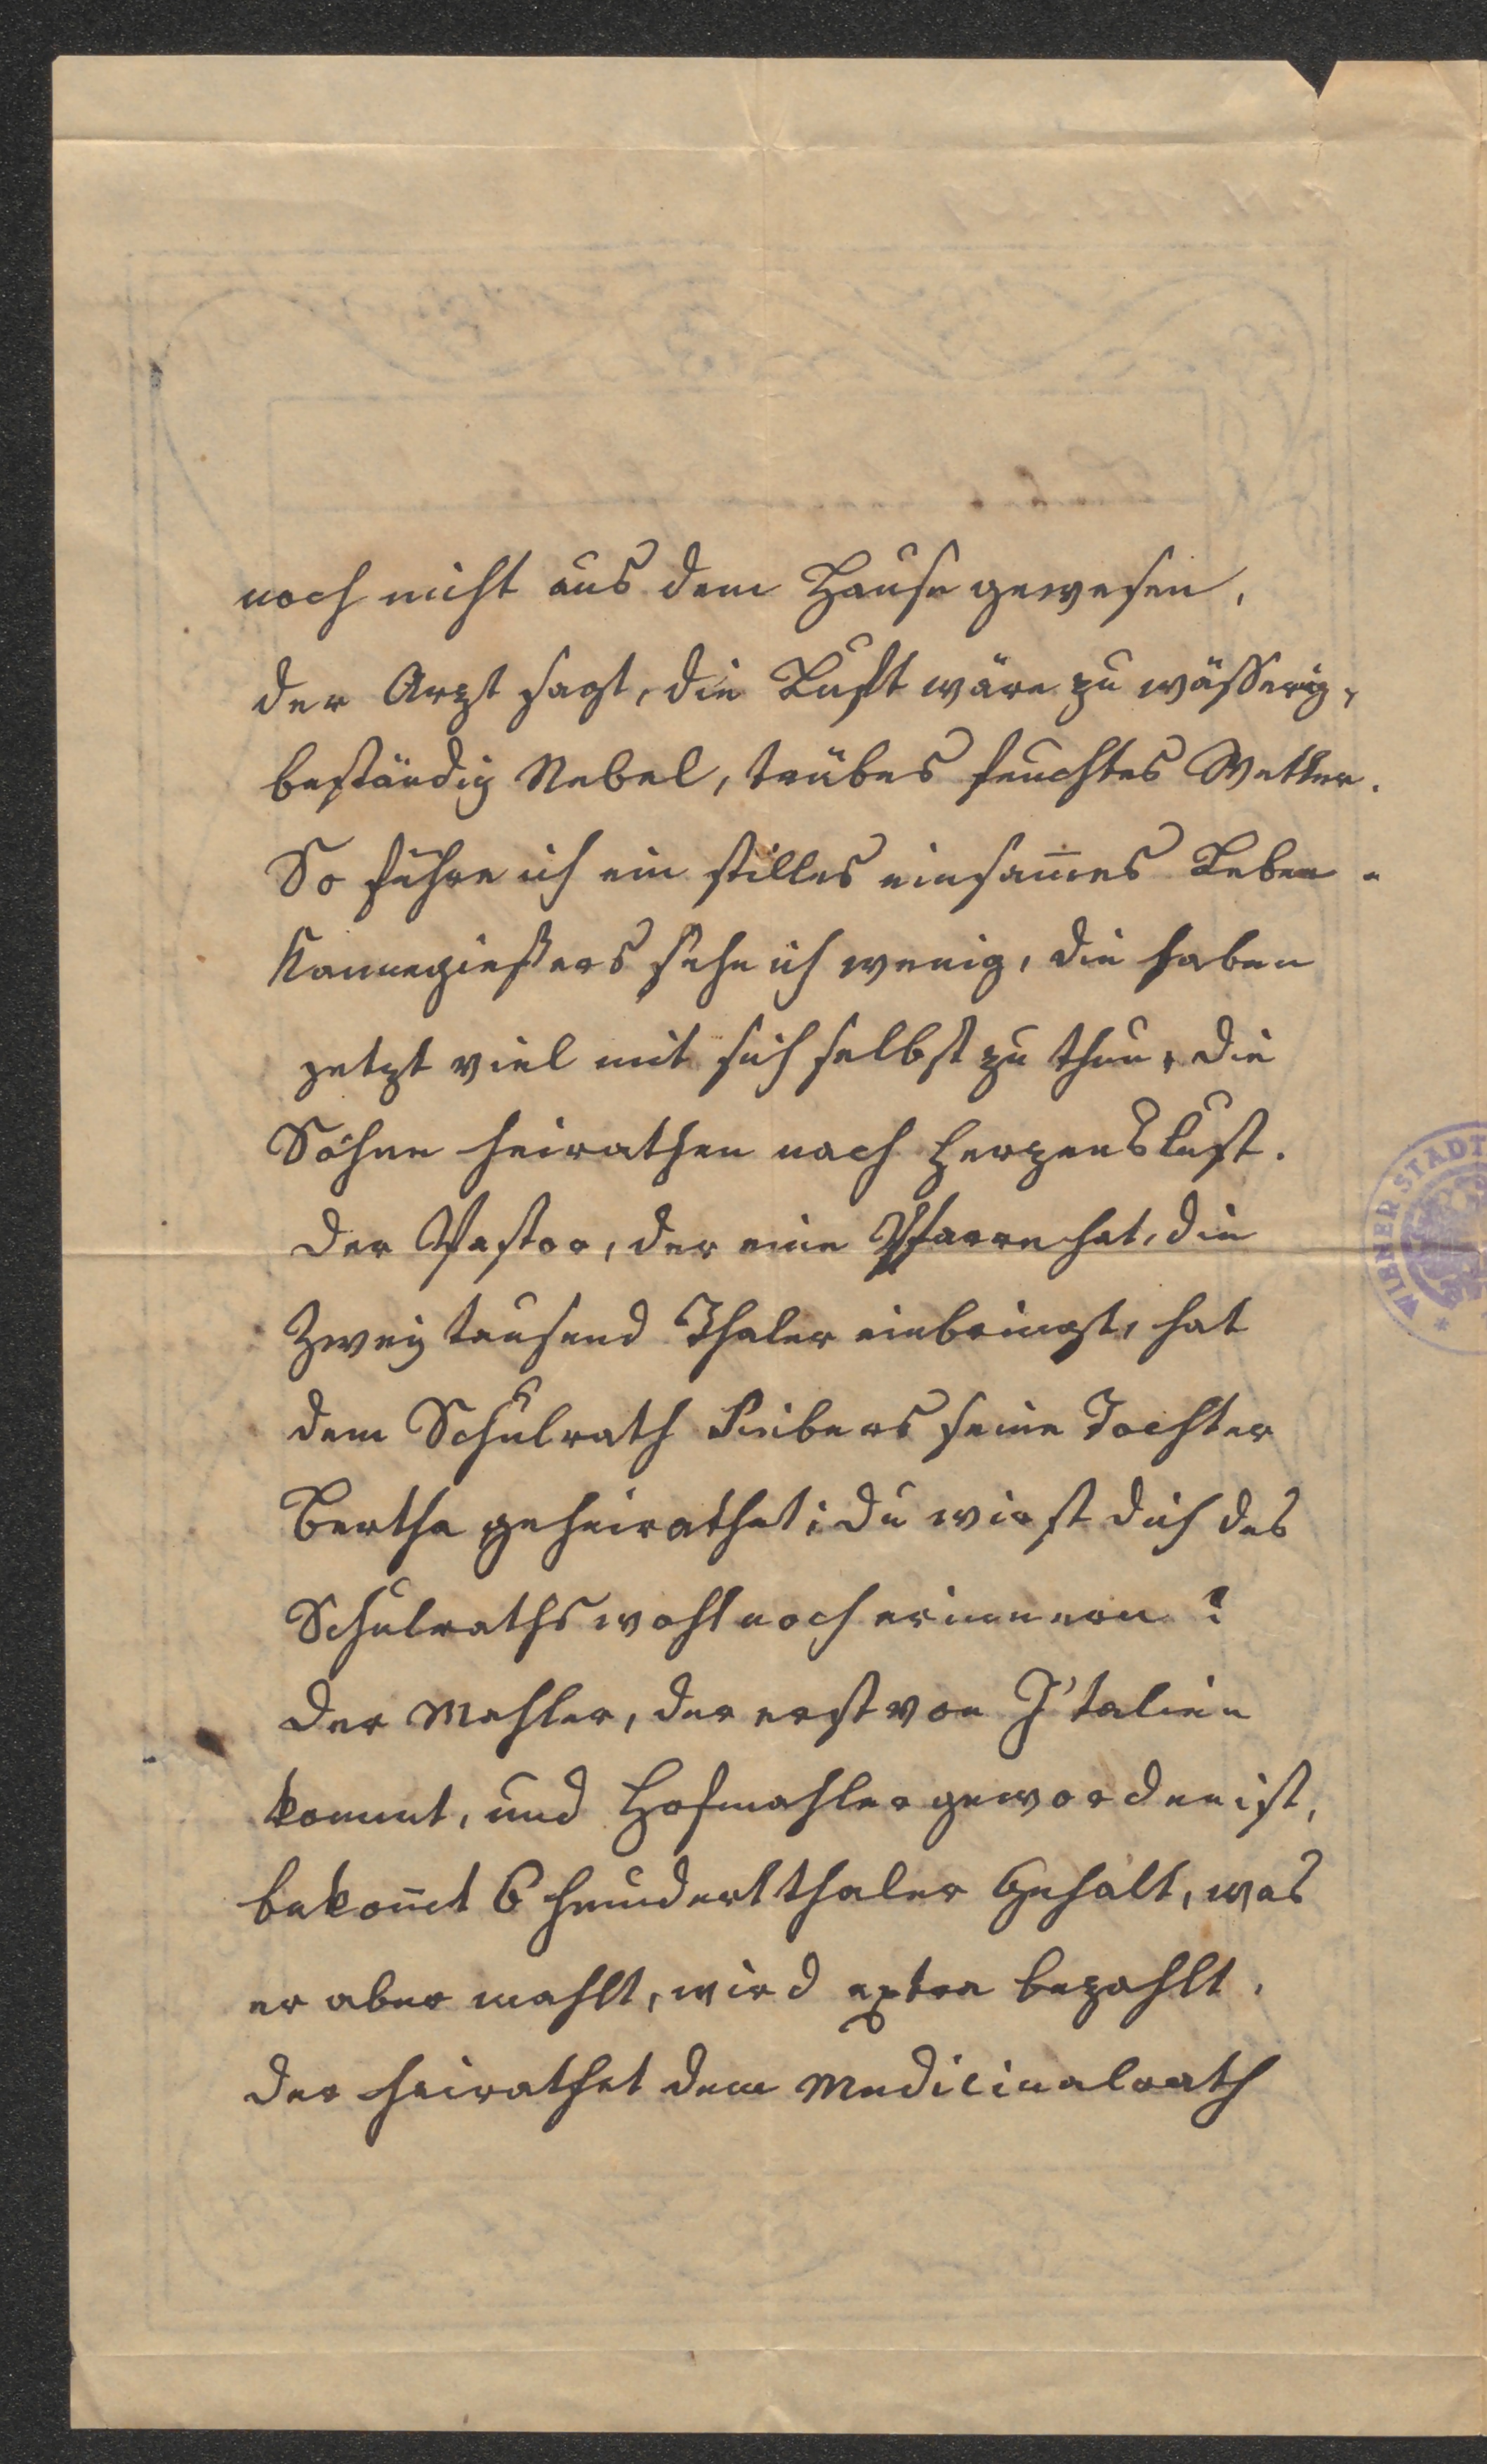 noch nicht aus dem Hause gewesen,
der Arzt sagt, die Luft wäre zu wässerig,
beständig Nebel, trübes feuchtes Wetter.
So führe ich ein stilles einsam̅es Leben.
Kannegießers sehe ich wenig, die haben
jetzt viel mit sich selbst zu thun, die
Söhne heirathen nach Herzenslust.
der Pastor, der eine Pfarre hat, die
Zwey tausend Thaler einbringt, hat
dem Schulrath seine Tochter
Bertha geheirathet; du wirst dich des
Schulraths wohl noch erinnern?
der Mahler, der erst von I'talien
kommt, und Hofmahler geworden ist,
bekom̅t 6 hundert thaler Gehalt, was
er aber mahlt, wird extra bezahlt.
der heirathet dem Medicinalrath
WIENER STADT